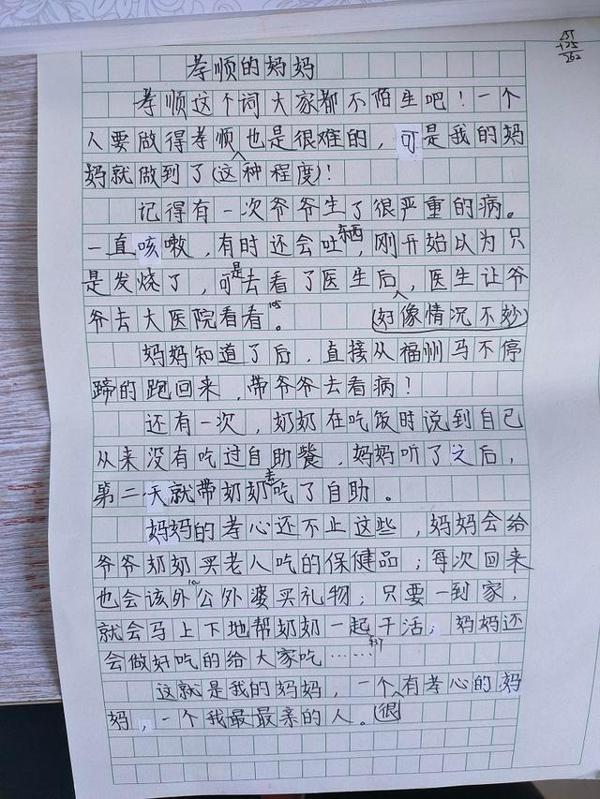 孝顺的妈妈
孝顺这个词大家都不陌生吧！一个
人要做得孝顺也是很难的，可是我的妈
妈就做到了(这种程度)！
记得有一次爷爷生了很严重的病。
一直咳嗽，有时还会吐，刚开始以为只
是发烧了，可是去看了医生后，医生让爷
爷去大医院看看。(好像情况不妙)
妈妈知道了后，直接从福州马不停
蹄的跑回来，带爷爷去看病！
还有一次，奶奶在吃饭时说到自己
从来没有吃过自助餐，妈妈听了之后，
第二天就带奶奶去吃了自助。
妈妈的孝心还不止这些，妈妈会给
爷爷奶奶买老人吃的保健品；每次回来
也会该外公外婆买礼物；只要一到家，
就会马上下地帮奶奶一起干活；妈妈还
会做好吃的给大家吃……
这就是我的妈妈，一个很有孝心的妈
妈，一个我最最亲的人。